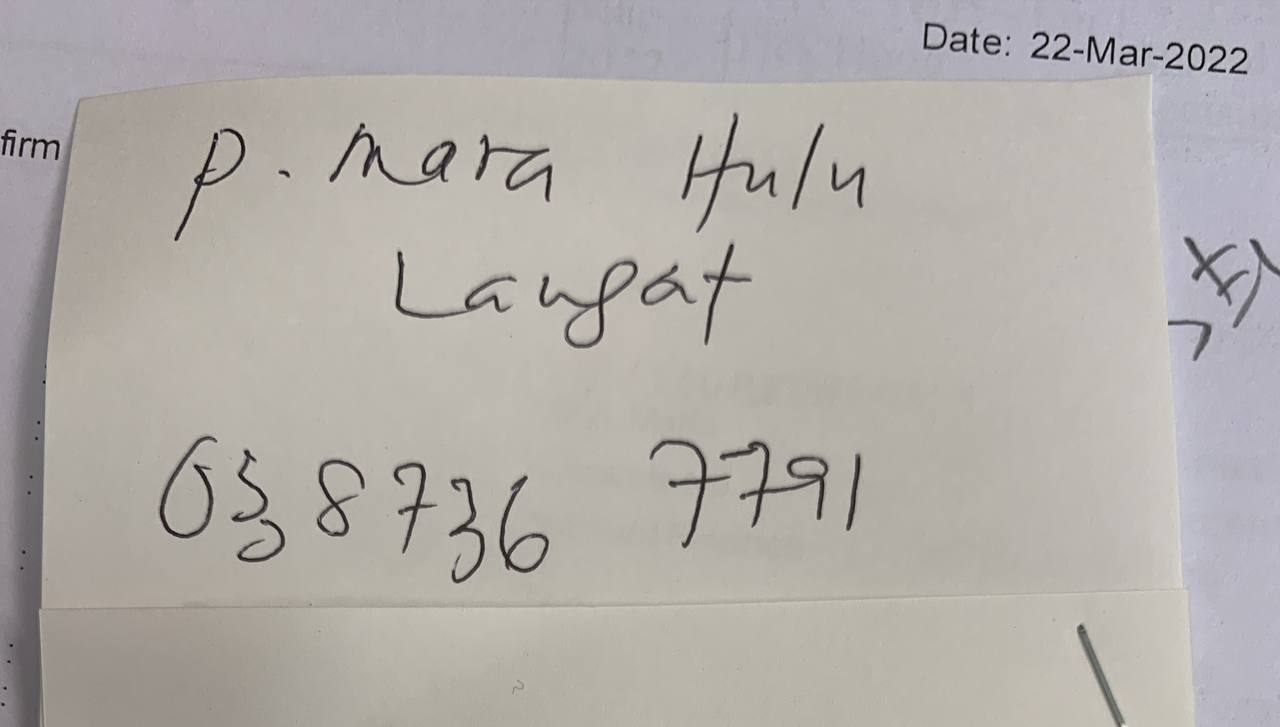 Date: 22-Mar-2022
firm
P. Mara Hulu
Langat
03 8736 7791